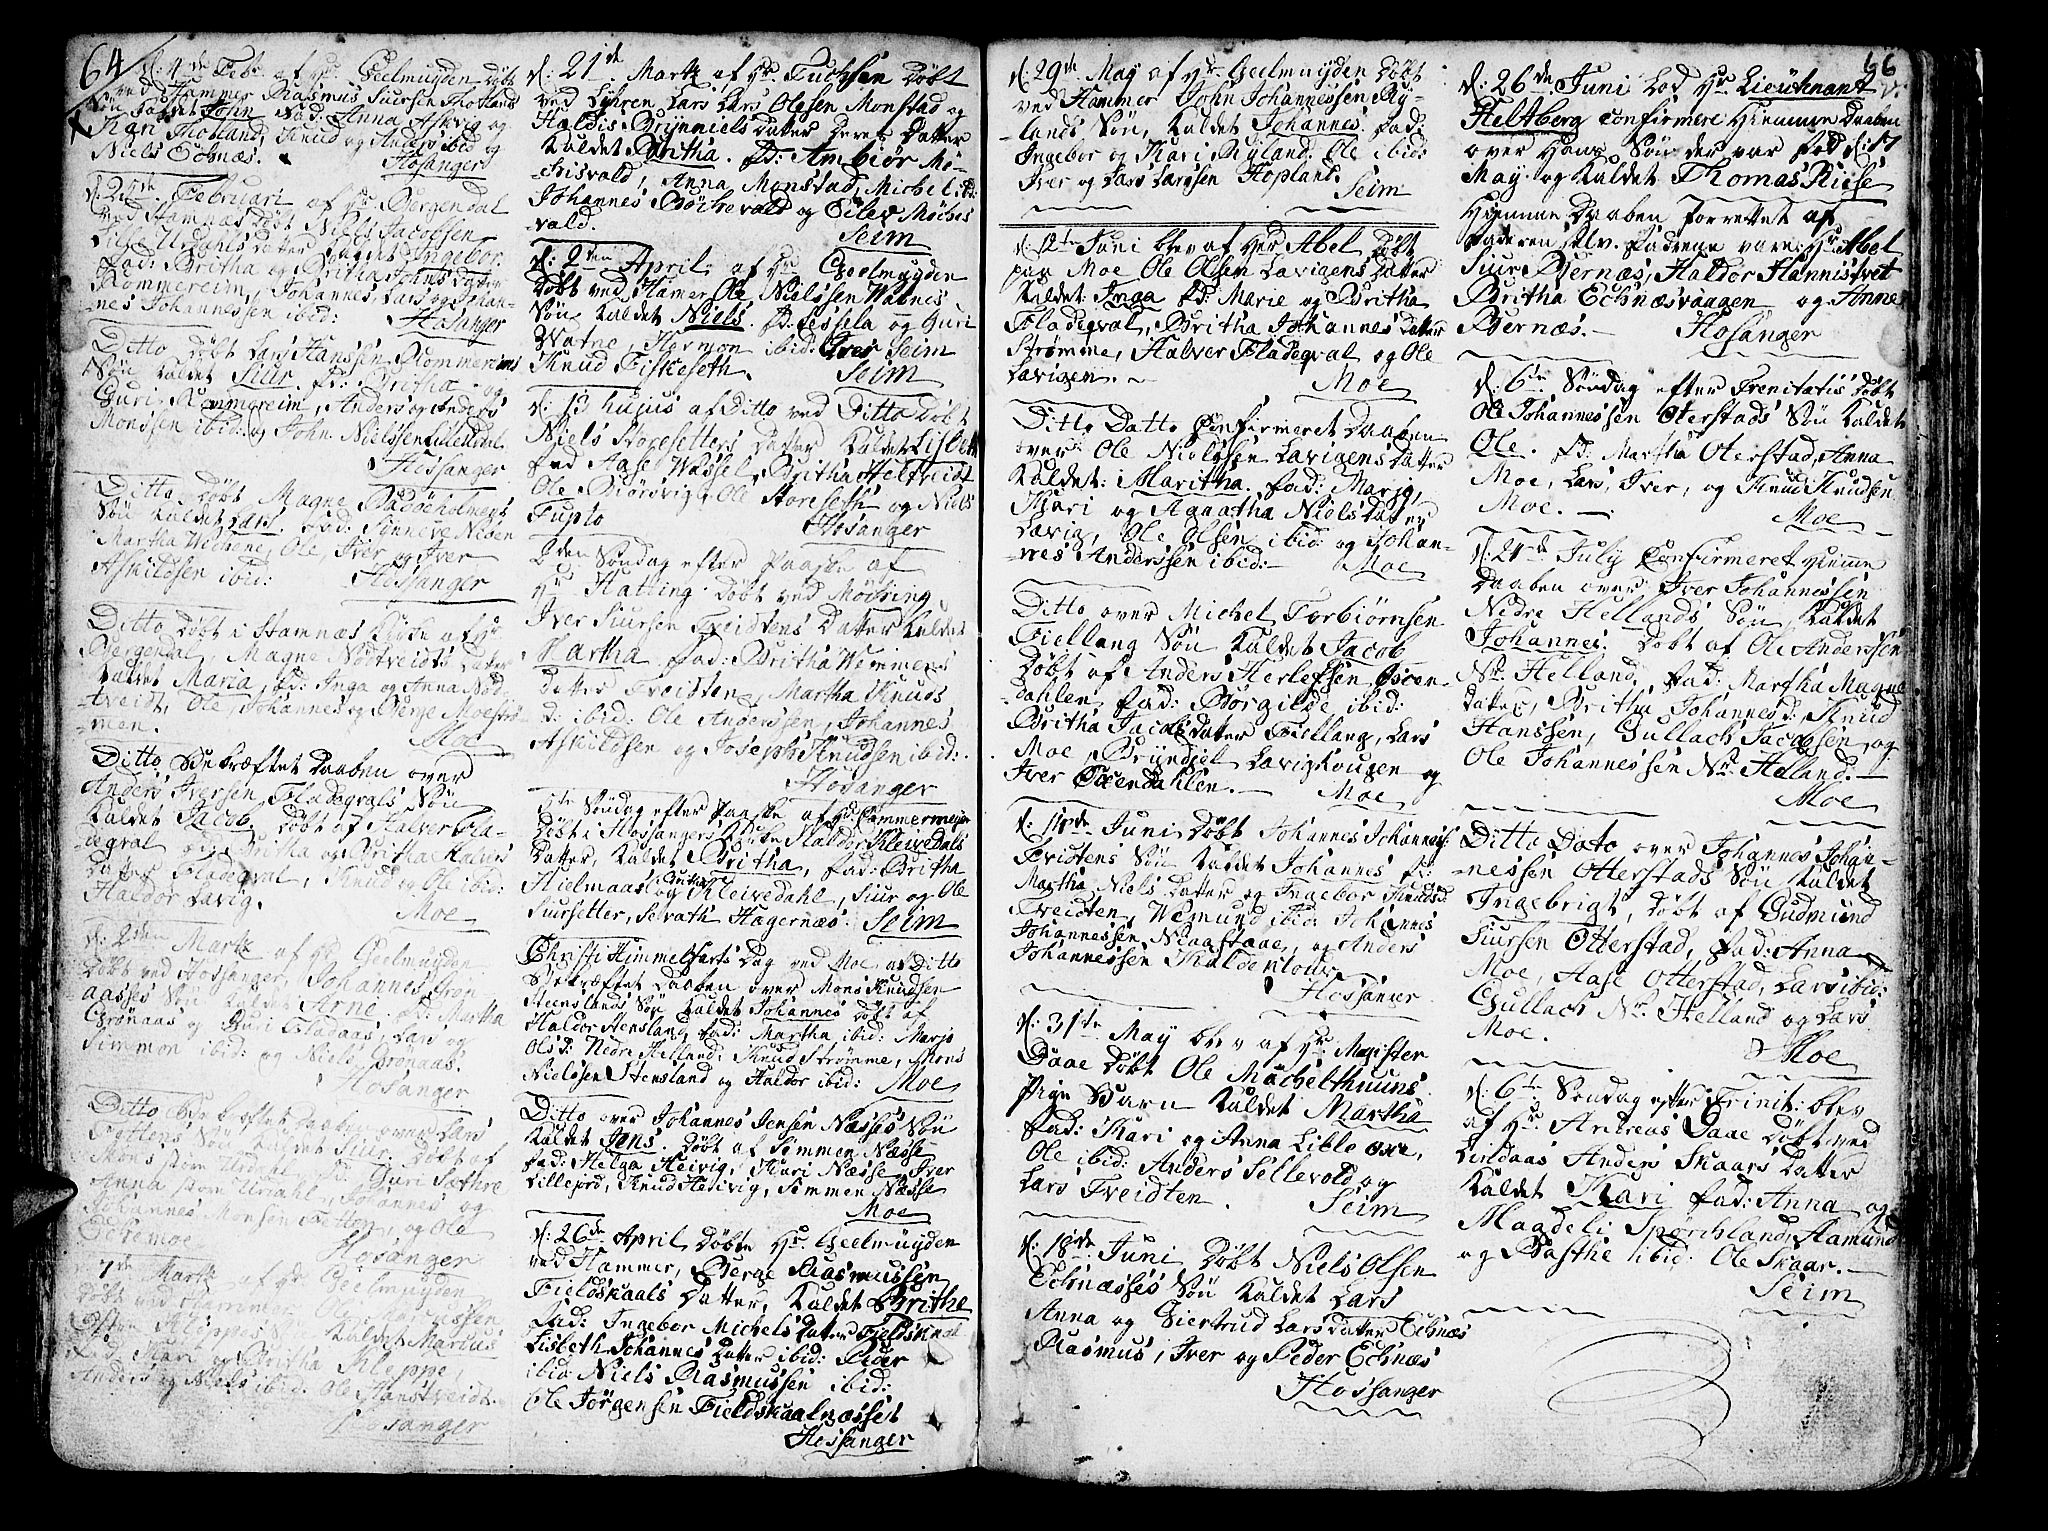 64
d: 4de Febr. af Hr. Geelmuyden Döbt
ved Hammer Rasmus Siursen Tholands
Søn kaldet John. Fad: Anna Askvig og
Kari Tholand, Knud og Anders ibid og
Niels Echnæs.
Hosanger
d: 21de Februari af Hr. Bergendal
ved Stamnæs döbt Niels Jacobsen
datter kaldet Ingebor.
Fad: Britha og Britha Johns datter
Rommereim, Johannes, Lars og Johan-
nes Johannessen ibid:
Hosanger
Ditto döbt Lars Hanssen Rommereims
Søn kaldet Siur. fd: Britha og
Guri Rommereim, Anders og Anders
Monssen ibid: og John Nielssen Eilendal.
Hossanger
Ditto döbt Magne
Søn kaldet Lars. fad: Synneve
Martha Ole, Iver og Iver
Askildsen ibid:
Hossanger
Ditto döbt i Stamnæs Kirke af Hr.
Bergendal, Magne Nottveidts Datter
kaldet Maria, fd: Inga og Anna Nød-
tveidt, Ole, Johannes og Berje Moestrø-
men.
Moe
Ditto Bekræftet Daaben over
Anders Iversen Fladeqvals Søn
kaldet Jacob. döbt af Halver Fla-
deqval fd: Britha og Britha Halvers
Datter Fladeqval, Knud og Ole ibid:
Haldor Lavig.
Moe
d: 2den Martz af Hr. Geelmuyden
döbt ved Hossanger, Johannes Grøn-
aases Søn kaldet Arne. fd: Martha
Grønaas og Guri Fladaas, Lars og
Simmon ibid: og Niels Grønaas.
Hosanger
Ditto Bekreftet Daaben over Lars
Fottens Søn kaldet Siur. döbt af
Mons Urdahl fd: Guri Sæthre
Anna Urdahl, Johannes og
Johannes Monsen Fetten, og Ole
Echremoe
Hosanger
7de Martz af Hr. Geelmuyden
döbt ved Hammer Ole
Kleppes Søn kaldet Marcus
Fad: Kari og Britha Kleppe,
Anders og Niels ibid: Ole Hanstveidt.
Hossanger
d: 21de Martz af Hr. Fuchsen Döbt
ved Lyhren Lars Lars Olesen Monstad og
Haldis Brynniels Datter Deres Datter
kaldet Britha. fd: Ambiör Mö-
chisvald, Anna Monstad, Michel ibid:
Johannes Böchevald og Eilev Möches
vald.
Seim
d: 2den April af Hr. Geelmuyden
Döbt ved Hamer Ole Nielssen Watnes
Søn kaldet Niels. fd: Sessela og Guri
Watne, Hermon ibid: Iver Seim
Knud Fiskeseth.
Seim
d: 13 hujus af Ditto ved Ditto Döbt
Niels Storesetters Datter kaldet Lisbeth
fad Aase Wassel, Britha Heltveidt
Ole Biörsvig, Ole Storeseth og Niels
Fuglo
Hosanger
2den Søndag efter Paaske af
Hr. Hatting döbt ved Möering
Iver Siursen Tveidtens Datter kaldet
Martha fad: Britha Wemmens
datter Tveidten, Martha Knuds
d: ibid: Ole Anderssen, Johannes
Askildsen og Joseph Knudsen ibid:
Hosanger
5te Søndag efter Paaske af Hr. Cammermeyer
Döbt i Hossangers Kirke Haldor Kleivedals
Datter, kaldet Britha, fad: Britha
Hielmaas og Kleivedahl, Siur og Ole
Siursetter, Selrath Hagernæs.
Seim
Christi Himmelfarts Dag ved Moe af Ditto
Bekræftet Daaben over Mons Knudsen
Steenslands Søn kaldet Johannes döbt af
Haldor Stensland, fad: Martha ibid: Marjo
Ols d: Nedre Helland, Knud Strømme, Mons
Nielssen Stensland og Haldor ibid:
Moe
Ditto over Johannes Jensen Næsses Søn
kaldet Jens. döbt af Semmen Næsse
fad: Helga Heivig, Kuri Næsse, Iver
Lillejord, Knud Hedivig, Semmen Næsse
Moe
d: 26de April döbte Hr. Geelmuyden
ved Hammer, Berge Rasmussen
Fieldskaals Datter, kaldet Brithe
Fad: Ingebor Michels Datter Fieldskaal
Lisbeth Johannes Datter ibid: Peder
ibid Niels Rasmussen ibid:
Ole Jörgensen Fieldskaalnæsset
Hossanger
d: 29de May af Hr. Geelmuyden Döbt
ved Hammer John Johannessen Ry-
lands Søn, kaldet Johannes. fad:
Ingebor og Kari Ryland: Ole ibid:
Iver og Lars Larssen Hopland.
Seim
d: 12te Juni blev af Her Abel Döbt
paa Moe Ole Olsen Lavigens Datter
kaldet Inga fd: Marie og Britha
Fladeqval, Britha Johannes datter
Strømme, Halver Fladeqval og Ole
Lavigen.
Moe
Ditto Datto Confirmeret Daaben
over Ole Nielssen Lavigens Datter
kaldet: Maritha. fad: Marjo,
Kari og Agaatha Niels Datter
Lavig, Ole Olsen ibid: og Johan-
nes Anderssen ibid:
Moe
Ditto over Michel Torbiörnsen
Fiellang Søn kaldet Jacob
döbt af Anders Herlefsen Oxen-
dahlen, fad: Borgilde ibid:
Britha Jacobs datter Fiellang, Lars
Moe, Bryndjel Lavighougen og
Iver Oxendahlen.
Moe
d: 11de Juni döbt Johannes Johannes:
Tvidtens Søn kaldet Johannes fd:
Martha Niels Datter og Ingebor Knuds d:
Tveidten, Wemund ibid: Johannes
Johannessen og Anders
Johannessen
Hossanger
d: 31te May blev af Hr. Magister
Daae Döbt Ole Michelthuuns
Pige Barn kaldet Martha
fad: Kari og Anna Lille oxe,
Ole ibid: Anders Sellevold og
Lars Tveidten.
Seim
d: 18de Juni döbt Niels Olsen
Echnæsses Søn kaldet Lars
Anna og Giertrud Lars datter Echnæs
Rasmus, Iver og Peder Echnæs
Hossanger
66
d: 26de Juni lod Hr. Lieutenant v:
Heltberg confirmere Hiemme Daaben
over Hans Søn der var fød d: 17
May og kaldet Thomas Riise
Hiemme Daaben forrettet af
Faderen selv. Fadrene vare Hr. Abel
Siur Bernæs, Haldor Hannisdvet
Britha Echnæsvaagen og Anne
Bernæs.
Hosanger
d: 6te Søndag efter Trenitatis döbt
Ole Johannessen Oterstads Søn kaldet
Ole. fd: Martha Oterstad, Anna
Moe, Lars, Iver, og Knud Knudsen
Moe.
Moe
d: 21de July Confirmeret Hiemme
Daaben over Iver Johannessen
Nedre Hellands Søn, kaldet
Johannes. döbt af Ole Anderssen
Nr. Helland. fad: Martha Magne
datter, Britha Johannes d: Knud
Hanssen, Gullach Jacobsen, og
Ole Johannessen Nr. Helland.
Moe
Ditto Dato over Johannes Johan-
nessen Otterstads Søn kaldet
Ingebrigt, döbt af Gudmund
Siursen Otterstad, fad: Anna
Moe, Aase Otterstad, Lars ibid:
Gullach Nr. Helland og Lars
Moe.
Moe
d: 6te Søndag efter Trinit: blev
af Hr. Andreas Daae döbt ved
Lindaas Anders Skaars Datter
kaldet Kari fad: Anna og
Magdeli Spørchland, Hamund
og Basthe ibid. Ole Skaar.
Seim